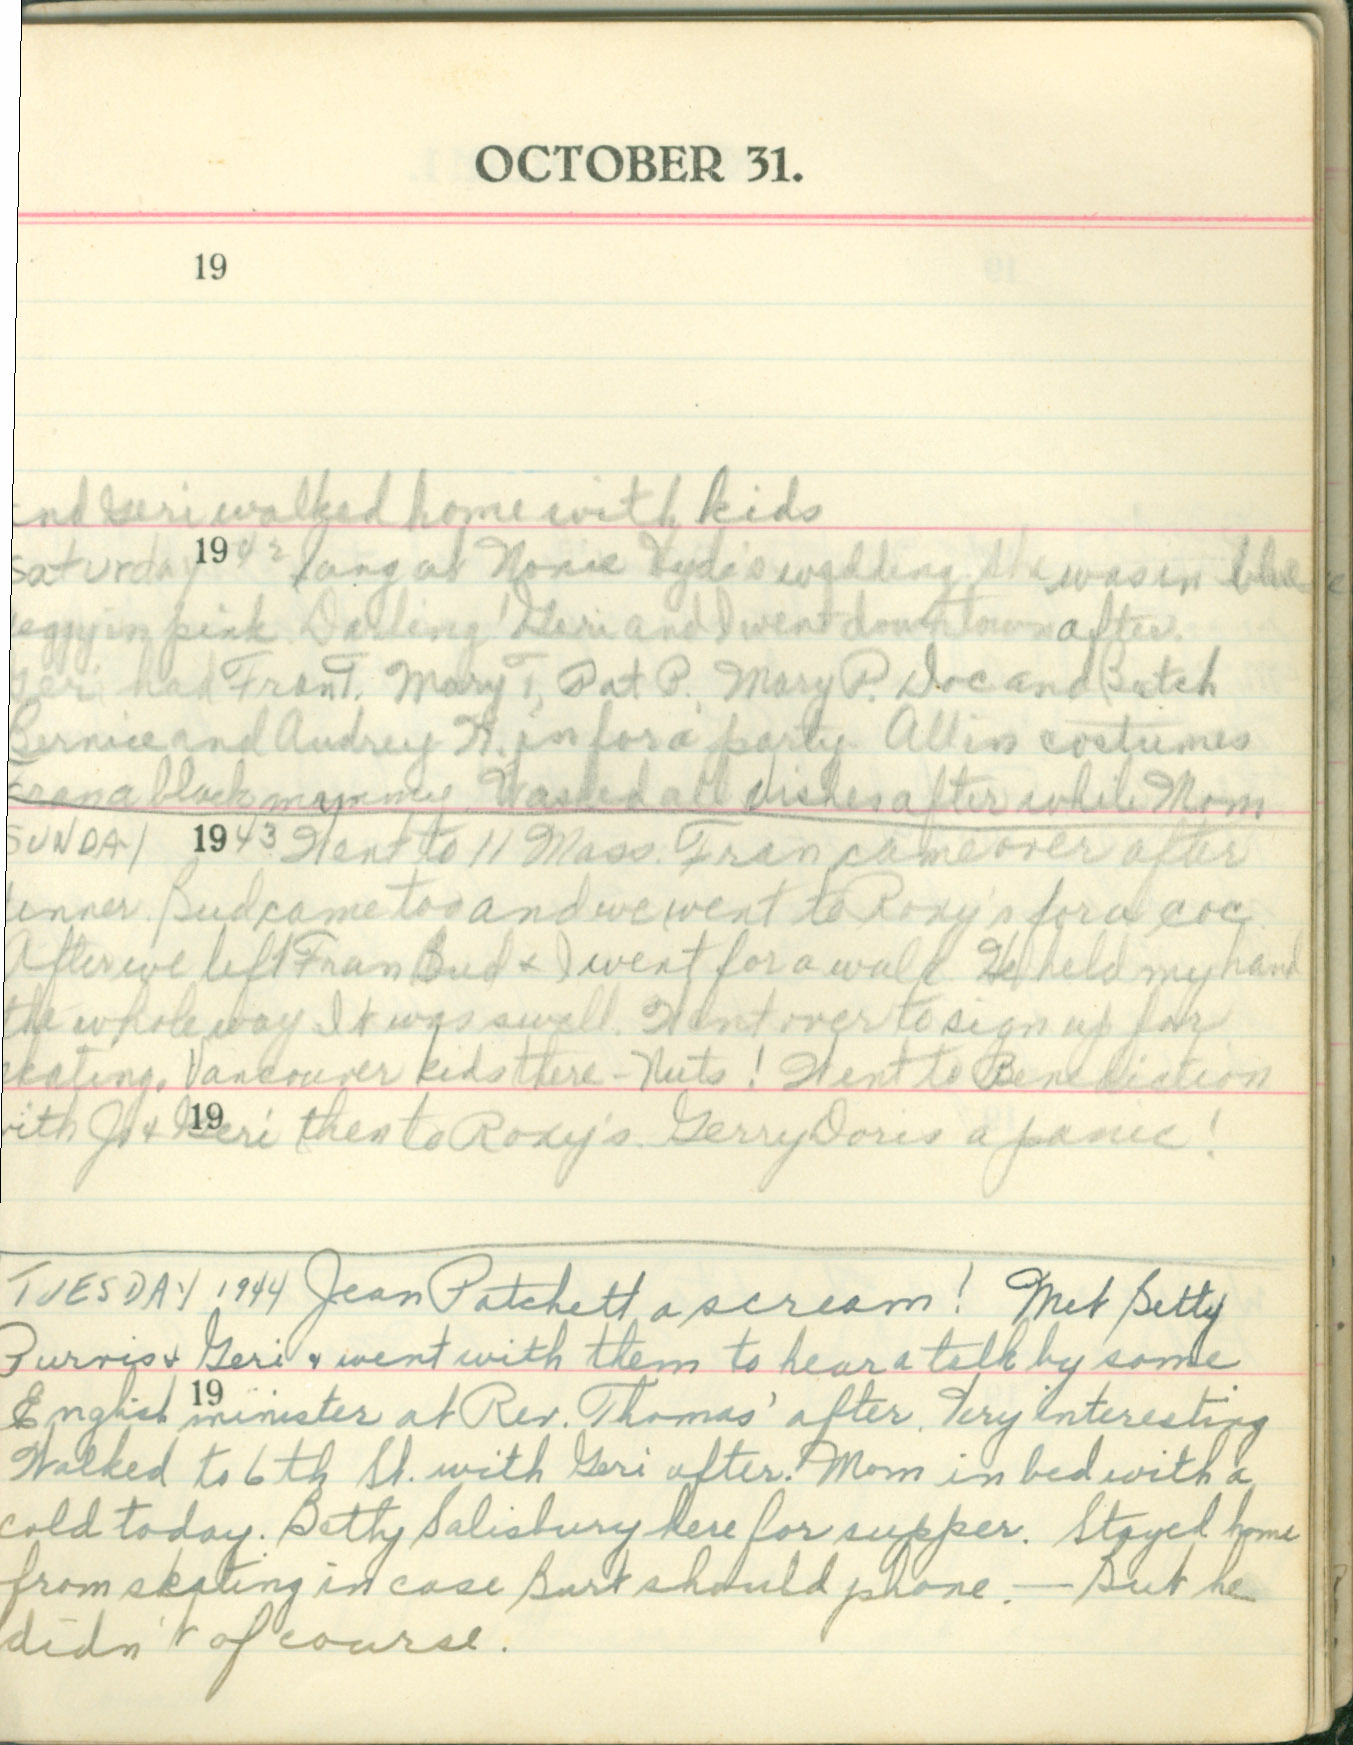 OCTOBER 31.
19
nd Geri walked home with kids
Saturday 1942 Sang at Nonie Hyde's wedding. She was in blue
eggy in pink. Darling! Geri and I went downtown after.
Geri had Fran T. Mary T, Pat P. Mary P. Doc and Butch
Bernice and Audrey H. in for a party. All in costumes
Fran a black mammy. Washed all dishes after while Mom
SUNDAY 1943 Went to 11 Mass. Fran came over after
inner. Bud came too and we went to Roxy's for a coc.
After we left Fran Bud & I went for a walk. He held my hand
the whole way. It was swell. Went over to sign up for
skating. Vancouver kids there - Nuts! Went to Benediction
19
with Jo & Geri then to Roxy's. Gerry Doris a panic!
TUESDAY 1944 Jean Patchett a scream! Met Betty
Purvis & Geri & went with them to hear a talk by some
19
English minister at Rev. Thomas' after. Very interesting
Walked to 6th St. with Geri after. Mom in bed with a
cold today. Betty Salisbury here for supper. Stayed home
from skating in case Burt should phone. — But he
didn't of course.